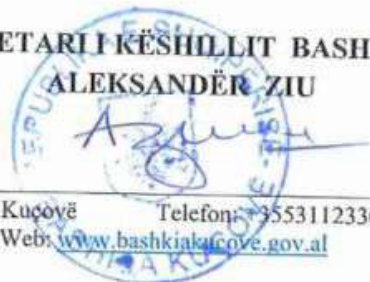 ETARI I KËSHILLIT BASH
ALEKSANDËR ZIU
Kuçovë Telefon: +3553112336
Web: www.bashkiakucove.gov.al